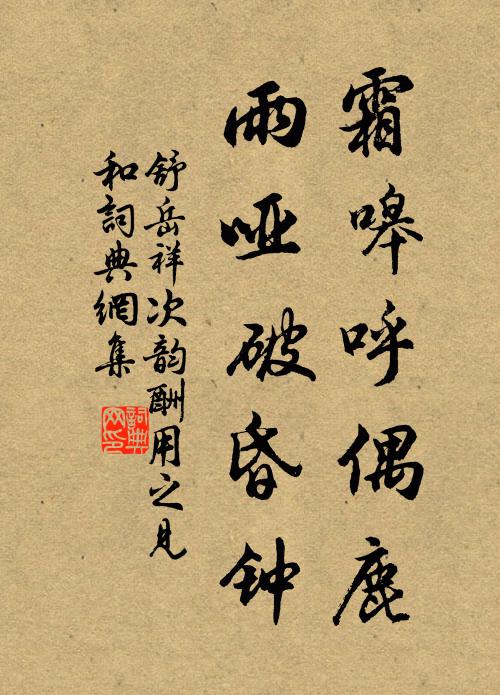 霜嗥呼偶鹿
雨哑破昏钟
舒岳祥次韵酬用之见
和詞典網集
詞典
网印